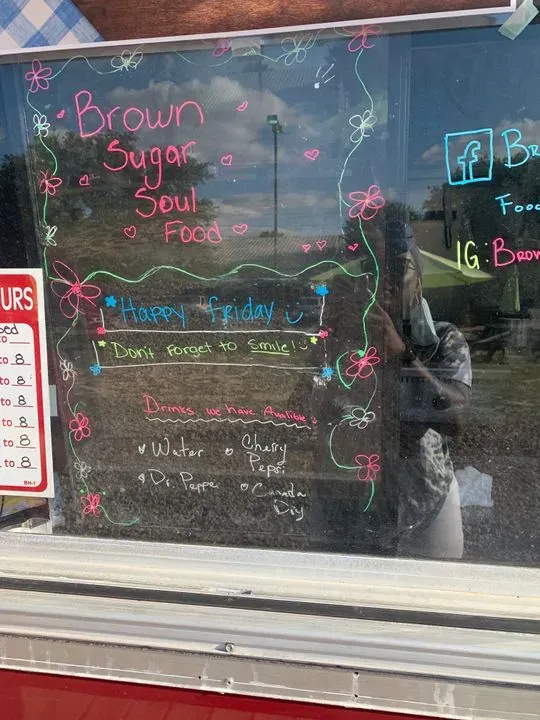 Brown
Sugar
Soul
Food
Happy friday
Don't forget to Smile!
Drinks we have Avalible
Water
Cherry
Pepsi
Dr. Pepper
Canada
Dry
URS
sed
to 8
to 8
to 8
to 8
to 8
to 8
BH-1
f Br
Food
IG: Brow